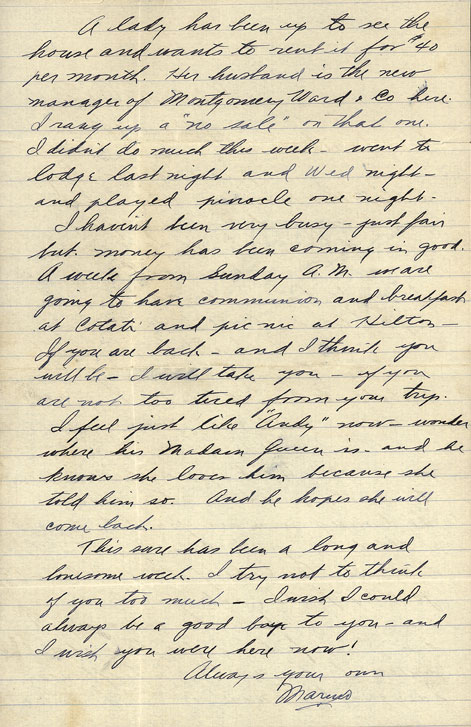 A lady has been up to see the
house and wants to rent it for $40
per month. Her husband is the new
manager of Montgomery Ward & Co here.
I rang up a "no sale" on that one.
I didn't do much this week - went to
lodge last night and Wed night -
and played pinacle one night -
I havin't been very busy - just fair
but money has been coming in good.
A week from Sunday A.M. we are
going to have communion and breakfast
at Cotati and picnic at Hilton -
If you are back - and I think you
will be - I will take you - if you
are not too tired from your trip.
I feel just like "Andy" now - wonder
where his Madam Queen is - and he
knows she loves him because she
told him so. And he hopes she will
come back.
This sure has been a long and
lonesome week. I try not to think
of you too much - I wish I could
always be a good boy to you - and
I wish you were here now!
Always your own